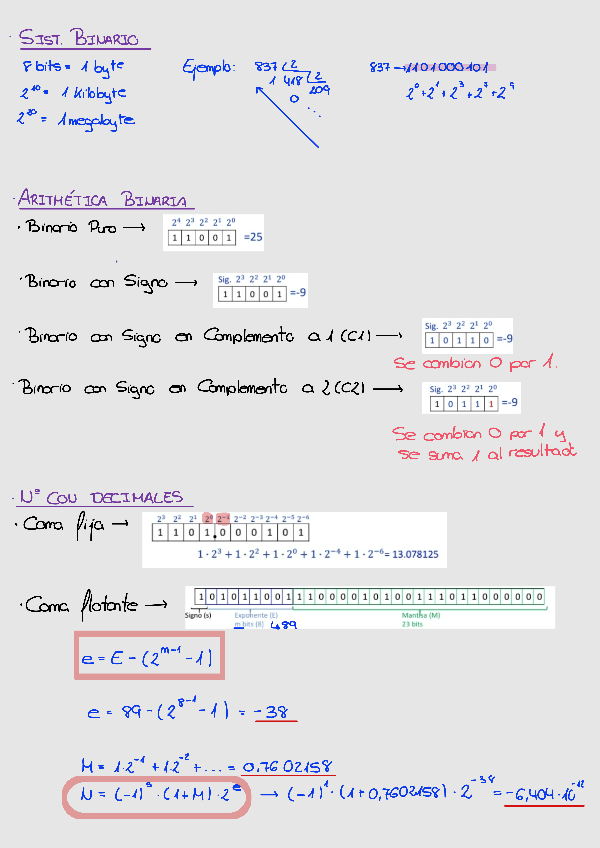 · SIST. BINARIO
8 bits = 1 byte
2¹⁰ = 1 Kilobyte
2²⁰ = 1 megabyte
Ejemplo: 837 ⌊2
1 418 ⌊2
0 209
...
837 → 1101000101
2⁰+2¹+2³+2⁷+2⁹
· ARITMÉTICA BINARIA
· Binario Puro →
2⁴ 2³ 2² 2¹ 2⁰
1 1 0 0 1 =25
· Binario con Signo →
Sig. 2³ 2² 2¹ 2⁰
1 1 0 0 1 =-9
· Binario con Signo en Complemento a 1 (C1) →
Sig. 2³ 2² 2¹ 2⁰
1 0 1 1 0 =-9
Se cambian 0 por 1.
· Binario con Signo en Complemento a 2 (C2) →
Sig. 2³ 2² 2¹ 2⁰
1 0 1 1 1 =-9
Se cambian 0 por 1 y
se suma 1 al resultado
· Nº CON DECIMALES
· Coma fija →
2³ 2² 2¹ 2⁰ 2⁻¹ 2⁻² 2⁻³ 2⁻⁴ 2⁻⁵ 2⁻⁶
1 1 0 1 . 0 0 0 1 0 1
1 · 2³ + 1 · 2² + 1 · 2⁰ + 1 · 2⁻⁴ + 1 · 2⁻⁶ = 13.078125
· Coma flotante →
1 0 1 0 1 1 0 0 1 1 1 0 0 0 0 1 0 1 0 0 1 1 1 0 1 1 0 0 0 0 0 0
Signo (s) Exponente (E) Mantisa (M)
m bits (8) ↳89 23 bits
e = E - (2ᵐ⁻¹ - 1)
e = 89 - (2⁸⁻¹ - 1) = -38
M = 1·2⁻¹ + 1·2⁻² + ... = 0,7602158
N = (-1)ˢ · (1+M) · 2ᵉ → (-1)¹ · (1+0,7602158) · 2⁻³⁸ = -6,404·10⁻¹²